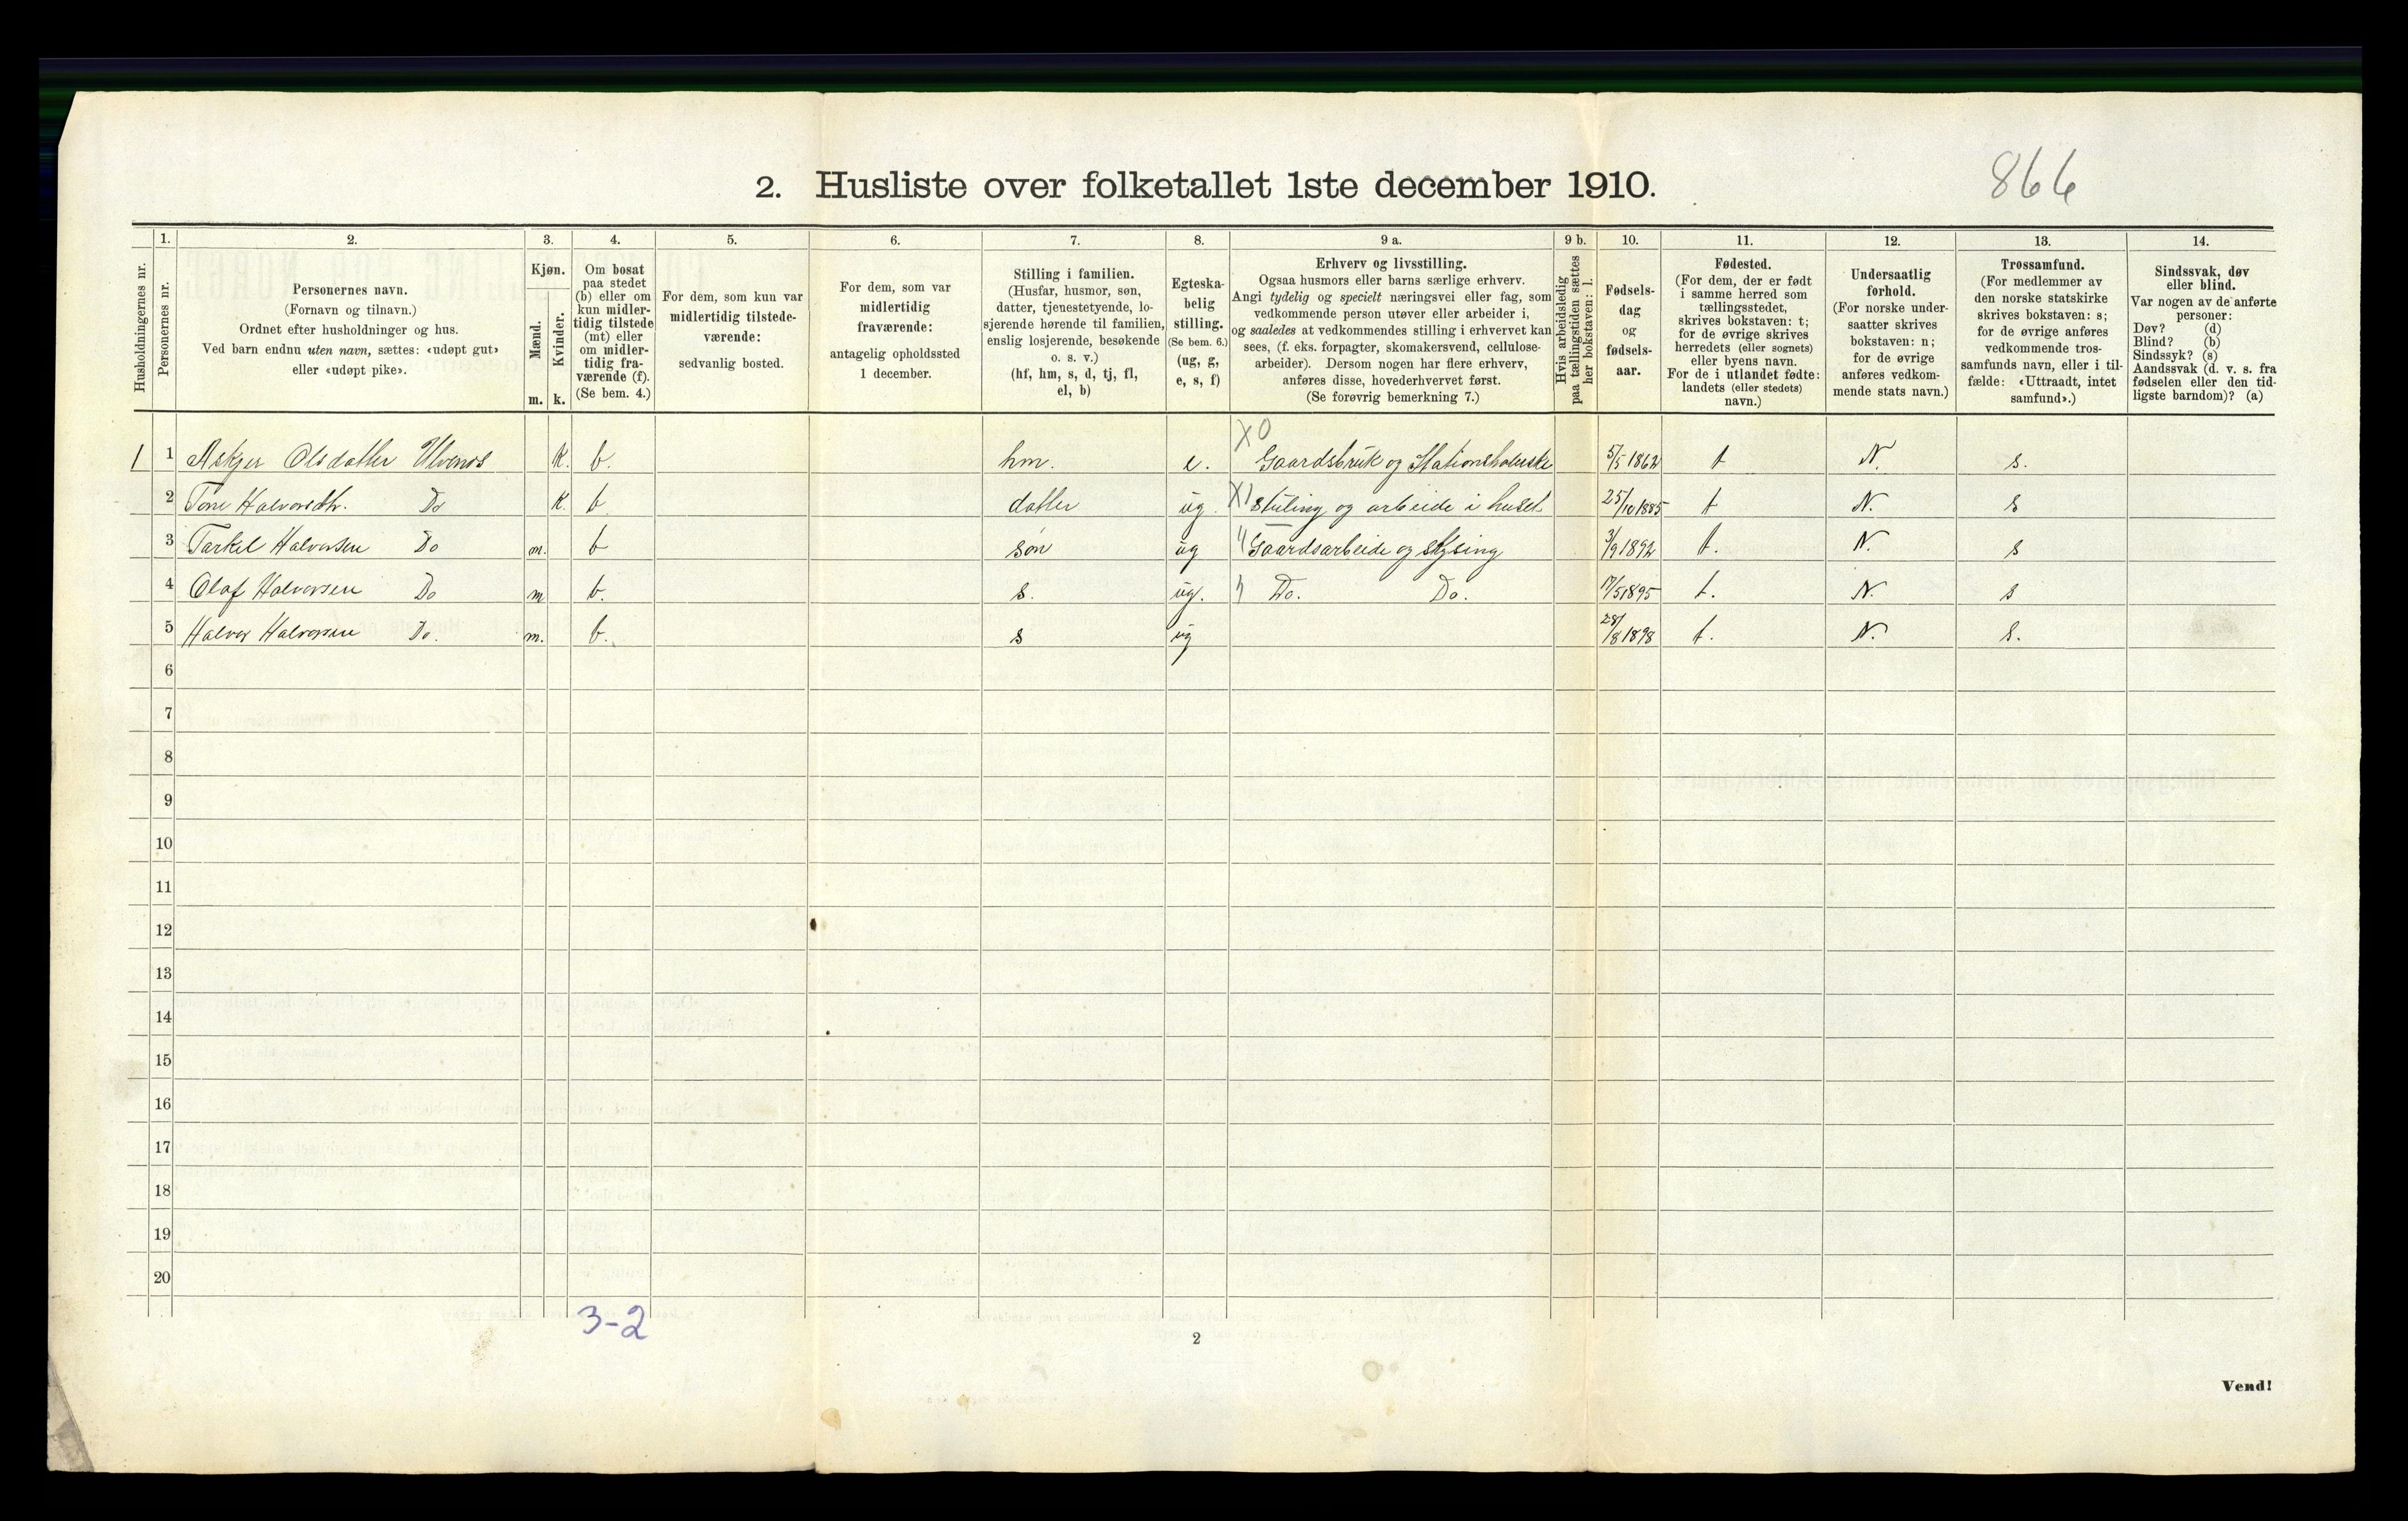 866
2. Husliste over folketallet 1ste december 1910.
Husholdningernes nr.
1.
Personernes nr.
2.
Personernes navn.
(Fornavn og tilnavn.)
Ordnet efter husholdninger og hus.
Ved barn endnu uten navn, sættes: «udøpt gut»
eller «udøpt pike».
3.
Kjøn.
Mænd.
m.
Kvinder.
k.
4.
Om bosat
paa stedet
(b) eller om
kun midler-
tidig tilstede
(mt) eller
om midler-
tidig fra-
værende (f).
(Se bem. 4.)
5.
For dem, som kun var
midlertidig tilstede-
værende:
sedvanlig bosted.
6.
For dem, som var
midlertidig
fraværende:
antagelig opholdssted
1 december.
7.
Stilling i familien.
(Husfar, husmor, søn,
datter, tjenestetyende, lo-
sjerende hørende til familien,
enslig losjerende, besøkende
o. s. v.)
(hf, hm, s, d, tj, fl,
el, b)
8.
Egteska-
belig
stilling.
(Se bem. 6.)
(ug, g,
e, s, f)
9 a.
Erhverv og livsstilling.
Ogsaa husmors eller barns særlige erhverv.
Angi tydelig og specielt næringsvei eller fag, som
vedkommende person utøver eller arbeider i,
og saaledes at vedkommendes stilling i erhvervet kan
sees, (f. eks. forpagter, skomakersvend, cellulose-
arbeider). Dersom nogen har flere erhverv,
anføres disse, hovederhvervet først.
(Se forøvrig bemerkning 7.)
9 b.
Hvis arbeidsledig
paa tællingstiden sættes
her bokstaven: l.
10.
Fødsels-
dag
og
fødsels-
aar.
11.
Fødested.
(For dem, der er født
i samme herred som
tællingsstedet,
skrives bokstaven: t;
for de øvrige skrives
herredets (eller sognets)
eller byens navn.
For de i utlandet fødte:
landets (eller stedets)
navn.)
12.
Undersaatlig
forhold.
(For norske under-
saatter skrives
bokstaven: n;
for de øvrige
anføres vedkom-
mende stats navn.)
13.
Trossamfund.
(For medlemmer av
den norske statskirke
skrives bokstaven: s;
for de øvrige anføres
vedkommende tros-
samfunds navn, eller i til-
fælde: «Uttraadt, intet
samfund».)
14.
Sindssvak, døv
eller blind.
Var nogen av de anførte
personer:
Døv? (d)
Blind? (b)
Sindssyk? (s)
Aandssvak (d. v. s. fra
fødselen eller den tid-
ligste barndom)? (a)
X0
1 1 Askjer Olsdatter Ulvenes K. b. hm. e. Gaardsbruk og 5/5 1862 t N. s.
2 Tone Halvorsdtr. Do K. b datter ug. X1 stuling og arbeide i huset 25/10 1885 t N. s
3 Tarkel Halvorsen Do m. b søn ug Gaardsarbeide og skysing 3/9 1892 t. N. s
4 Olaf Halvorsen Do m b. s. ug. Do. Do. 17/5 1895 t. N. s
5 Halvor Halvorsen Do. m. b. s ug 28/8 1898 t. N. s.
6
7
8
9
10
11
12
13
14
15
16
17
18
19
20
3-2
2
Vend!